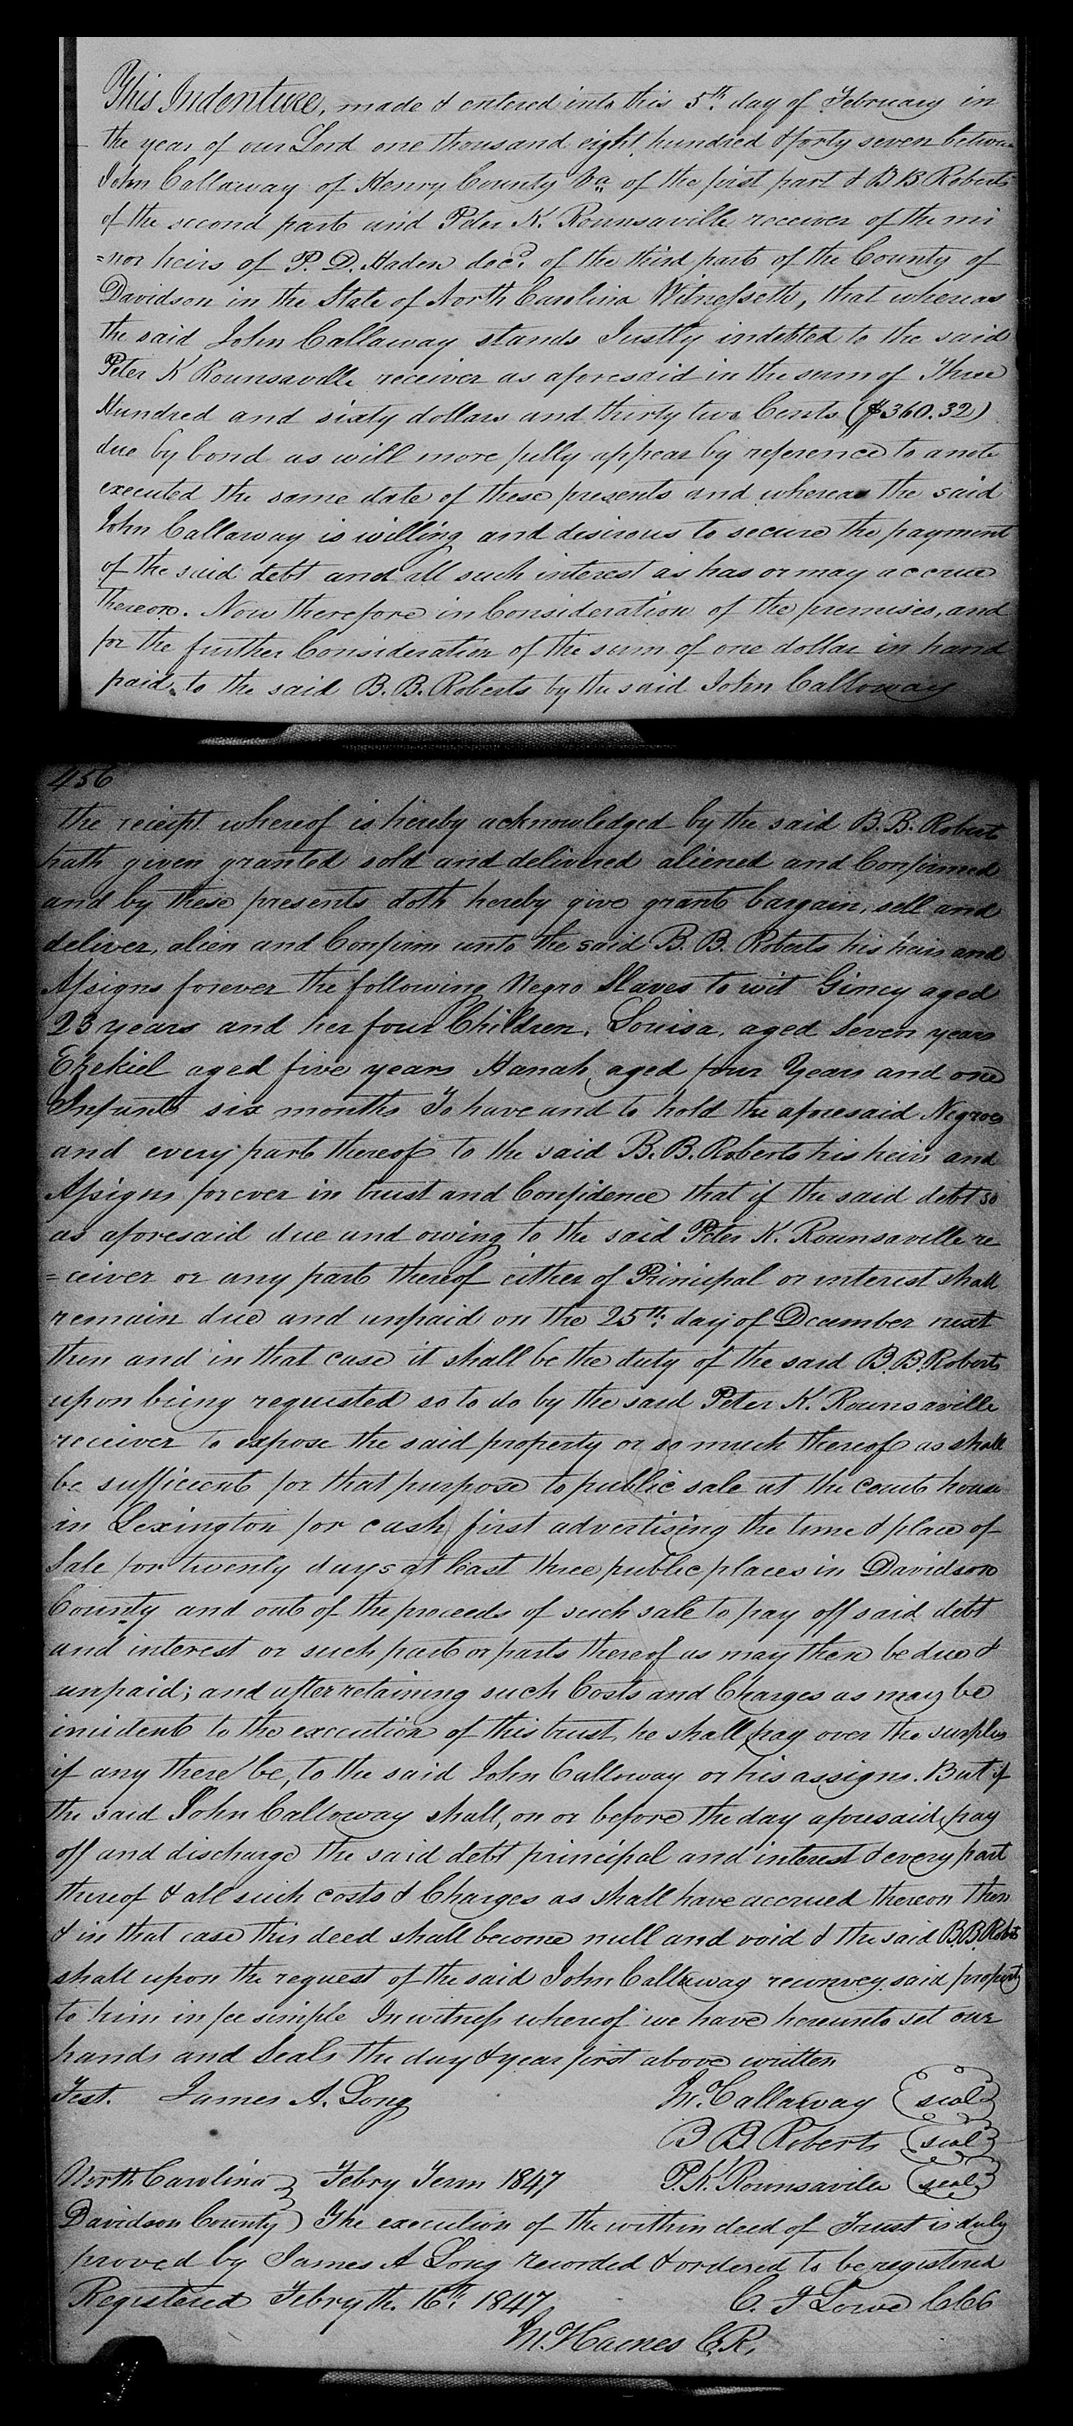 This Indenture, made & entered into this 5th day of February in
the year of our Lord one thousand eight hundred & forty seven between
John Callaway of Henry County Va of the first part & B B Roberts
of the second part and Peter K. Rounsaville receiver of the mi
=nor heirs of P. D. Haden decd. of the third part of the County of
Davidson in the State of North Carolina Witnesseth, that whereas
the said John Callaway stands Justly indebted to the said
Peter K Rounsaville receiver as aforesaid in the sum of Three
Hundred and sixty dollars and thirty two Cents ($360.32)
due by bond as will more fully appear by reference to a note
executed the same date of these presents and whereas the said
John Callaway is willing and desirous to secure the payment
of the said debt and all such interest as has or may accrue
thereon. Now therefore in Consideration of the premises, and
for the further Consideration of the sum of one dollar in hand
paid to the said B. B. Roberts by the said John Calloway
456
the reciept whereof is hereby acknowledged by the said B. B. Roberts
hath given granted sold and delivered aliened and Confirmed
and by these presents doth hereby give grant bargain, sell and
deliver, alien and Confirm unto the said B. B. Roberts his heirs and
Assigns forever the following Negro Slaves to wit Gincy aged
23 years and her four Children, Louisa, aged Seven years
Ezekiel aged five years Hanah aged four Years and one
Infant six months To have and to hold the aforesaid Negroes
and every part thereof to the said B. B. Roberts his heirs and
Assigns forever in trust and Confidence that if the said debt so
as aforesaid due and owing to the said Peter K. Rounsaville re
=ceiver or any part thereof either of Principal or interest shall
remain due and unpaid on the 25th: day of Dcember next
then and in that case it shall be the duty of the said B. B. Roberts
upon being requested so to do by the said Peter K. Rounsaville
receiver to expose the said property or so much thereof as shall
be sufficient for that purpose to public sale at the court house
in Lexington for cash, first advertising the time & place of
Sale for twenty days at least three public places in Davidson
County and out of the proceeds of such sale to pay off said debt
and interest or such part or parts thereof as may then be due &
unpaid; and after retaining such Costs and Charges as may be
incident to the execution of this trust, he shall pay over the surplus
if any there be, to the said John Calloway or his assigns. But if
the said John Calloway shall, on or before the day aforesaid, pay
off and discharge the said debt principal and interest & every part
thereof & all such costs & Charges as shall have accrued thereon then
& in that case this deed shall become null and void & the said B. B. Roberts
shall upon the request of the said John Callaway reconvey said property
to him in fee simple In witness whereof we have hereunto set our
hands and Seals the day & year first above written
Test. James A. Long Jn. Callaway (seal)
B B Roberts (seal)
North Carolina } Febry Term 1847 P. K. Rounsaville (seal)
Davidson County } The execution of the within deed of Trust is duly
proved by James A Long recorded & ordered to be registered
Registered Febry th. 16th: 1847 C. F Lowe CCC
M. Haines C. R.